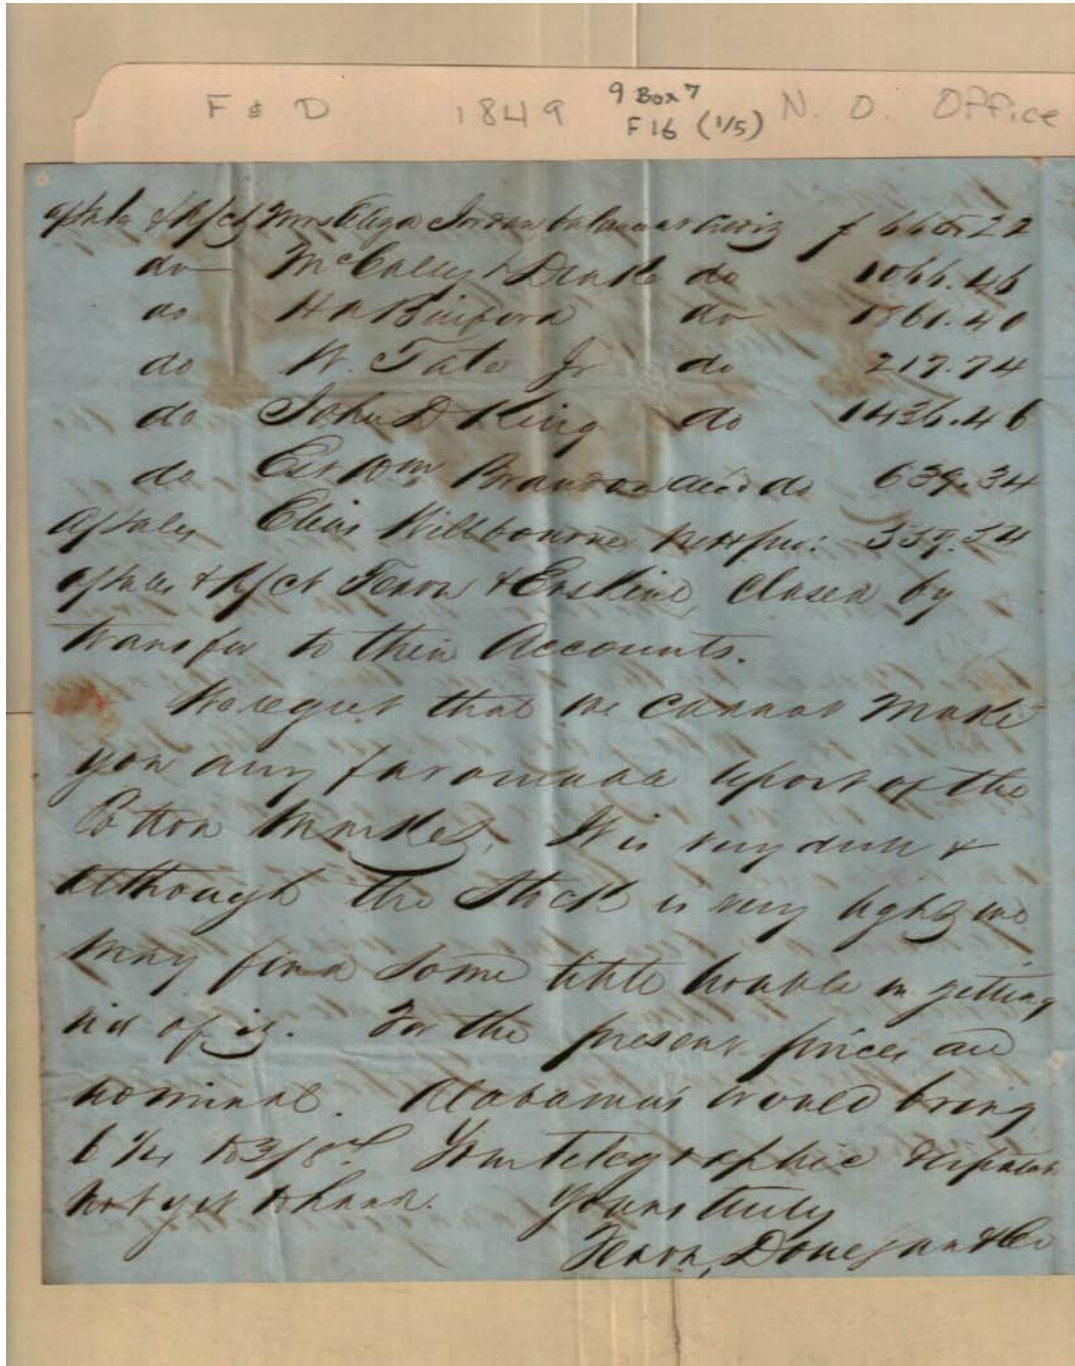 F & D 1849 9 Box 7 N. O. Office
F 16 (1/5)
a/sales & a/ct Mrs Eliza Jordan balance at credit $ 665.22
do McCalley & Drake do 1066.46
do H A Binford do 1361.40
do W. Tate Jr do 217.74
do John D King do 1436.46
do Est Wm Brandon decd do 639.34
a/sales Elias Willbourne nett pro: 339.34
a/sales & a/ct Fearn & Erskine, closed by
transfer to their Accounts.
We regret that we cannot make
you any favourable report of the
Cotton Market. It is very dull &
although the Stock is very light we
may find some little trouble in getting
rid of it. For the present prices are
nominal. Alabama's would bring
6 1/4 to 3/8 Your telegraphic dispatch
not yet to hand. Yours truly
Fearn, Donegan & Co